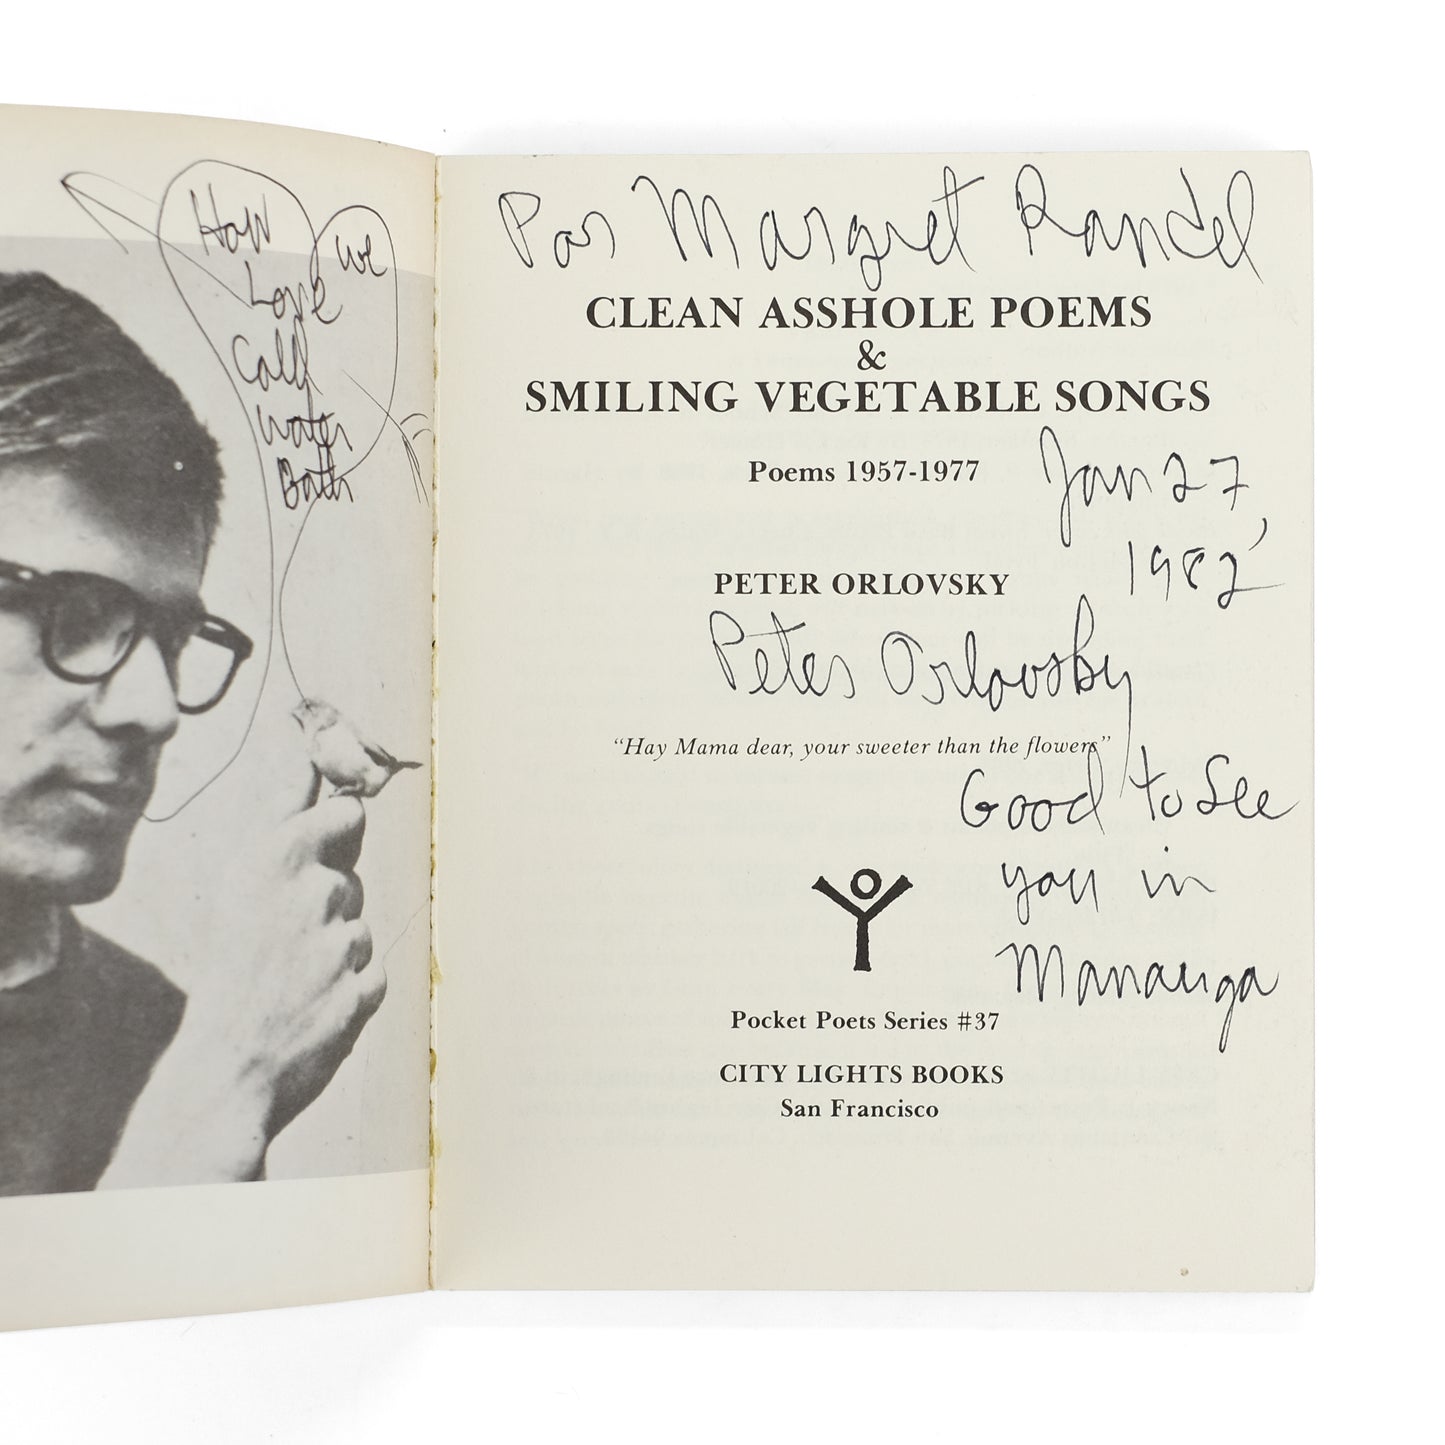 How
we
Love
Cold
water
Bath
Por Margret Randel
CLEAN ASSHOLE POEMS
&
SMILING VEGETABLE SONGS
Poems 1957-1977
Jan 27,
1982
PETER ORLOVSKY
Peter Orlovsky
“Hay Mama dear, your sweeter than the flowers”
Good to See
you in
Manauga
Pocket Poets Series #37
CITY LIGHTS BOOKS
San Francisco